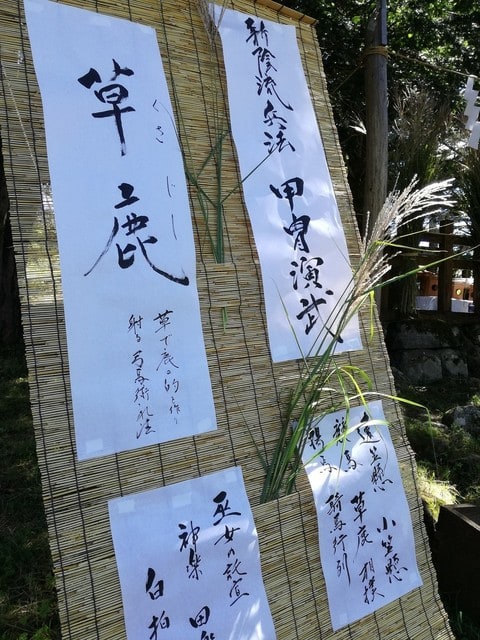 新陰流兵法
甲冑演武
草鹿
くさじし
草で鹿の的を作り
射る弓馬術礼法
遠笠懸
小笠懸
流鏑馬
草鹿
相撲
騎馬行列
巫女の託宣
神楽
田
白拍